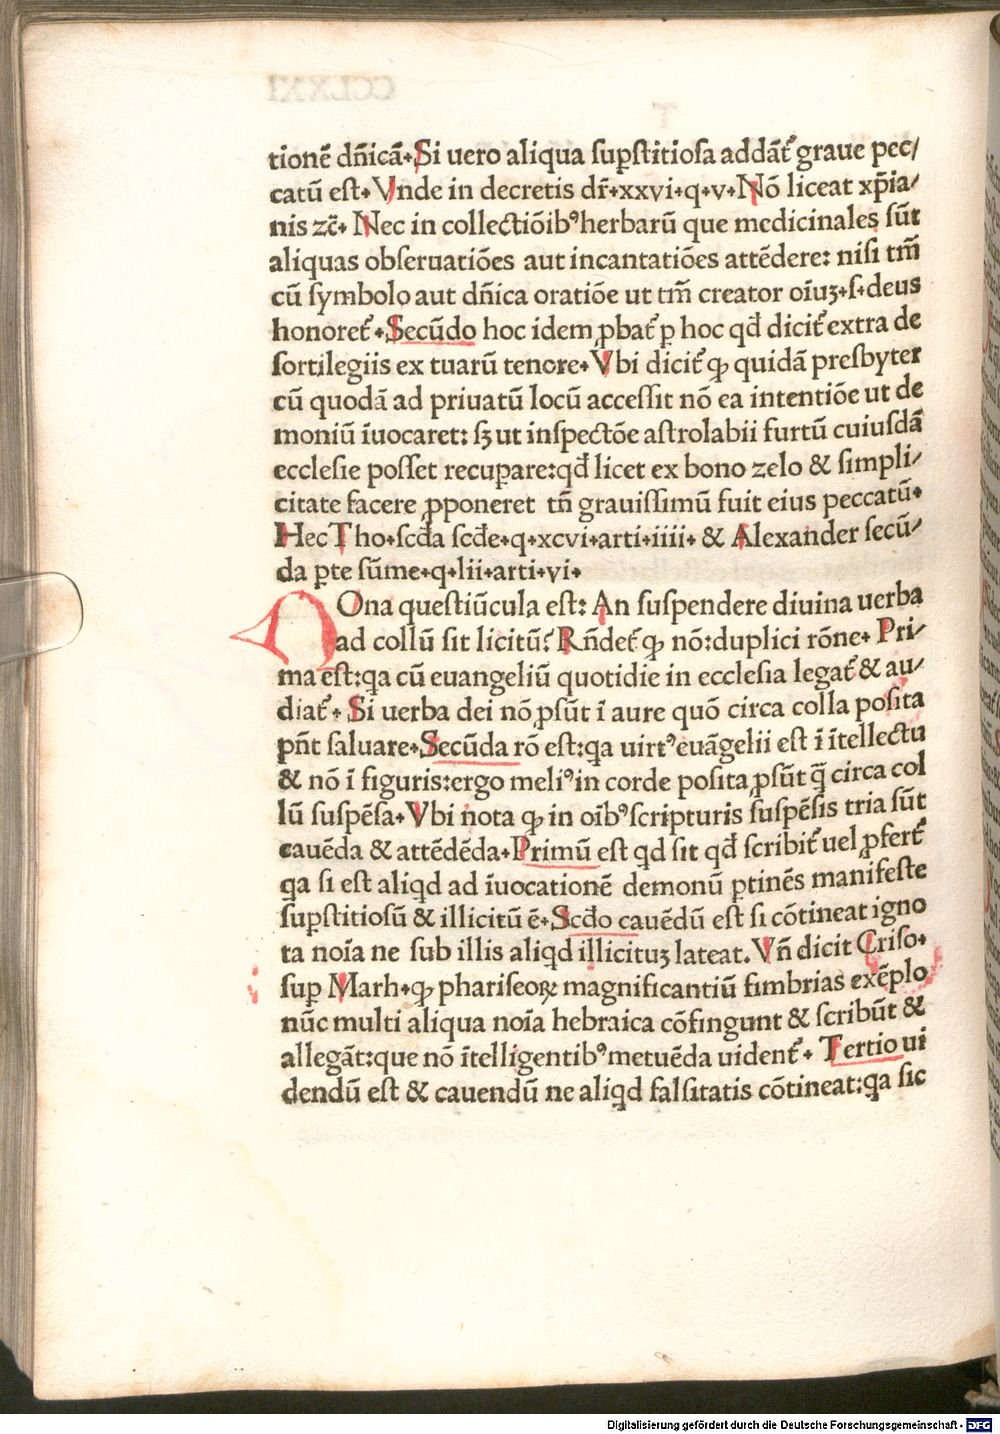 tionē dn̄icā. Si uero aliqua suꝑstitiosa addāt᷑ graue pec/
catū est. Vnde in decretis dr̄. xxvi. q. v. Nō liceat xp̄ia/
nis ⁊c̄. Nec in collectiōibꝰ herbarū que medicinales sūt
aliquas obseruatiōes aut incantatiōes attēdere: nisi tm̄
cū symbolo aut dn̄ica oratiōe ut tm̄ creator oīuꝫ. s. deus
honoret᷑. Secūdo hoc idem ꝓbat᷑ ꝑ hoc qđ dicit᷑ extra de
sortilegiis ex tuarū tenore. Vbi dicit᷑ ꝙ quidā presbyter
cū quodā ad priuatū locū accessit nō ea intentiōe ut de
moniū īuocaret: sꝫ ut inspectōe astrolabii furtū cuiusdā
ecclesie posset recuꝑare: qđ licet ex bono zelo & simpli/
citate facere ꝓponeret tn̄ grauissimū fuit eius peccatū.
Hec Tho. scđa scđe. q. xcvi. arti. iiii. & Alexander secū/
da ꝑte sūme. q. lii. arti. vi.
Nona questiūcula est: An suspendere diuina uerba
ad collū sit licitū? Rn̄det᷑ ꝙ nō: duplici rōne. Pri/
ma est: qa cū euangeliū quotidie in ecclesia legat᷑ & au/
diat᷑. Si uerba dei nō ꝓsūt ī aure quō circa colla posita
pn̄t saluare. Secūda rō est: qa uirtꝰ euāgelii est ī ītellectu
& nō ī figuris: ergo meliꝰ in corde posita ꝓsūt q̄ circa col
lū suspēsa. Vbi nota ꝙ in oībꝰ scripturis suspēsis tria sūt
cauēda & attēdēda. Primū est qd sit qđ scribit᷑ uel ꝓfert᷑
qa si est aliqd ad īuocationē demonū ꝑtinēs manifeste
suꝑstitiosū & illicitū ē. Scđo cauēdū est si cōtineat igno
ta noīa ne sub illis aliqd illicituꝫ lateat. Vn̄ dicit Criso.
suꝑ Math. ꝙ phariseoꝝ magnificantiū fimbrias exēplo
nūc multi aliqua noīa hebraica cōfingunt & scribūt &
allegāt: que nō ītelligentibꝰ metuēda uident᷑. Tertio ui
dendū est & cauendū ne aliqd falsitatis cōtineat: qa sic
Digitalisierung gefördert durch die Deutsche Forschungsgemeinschaft - DFG